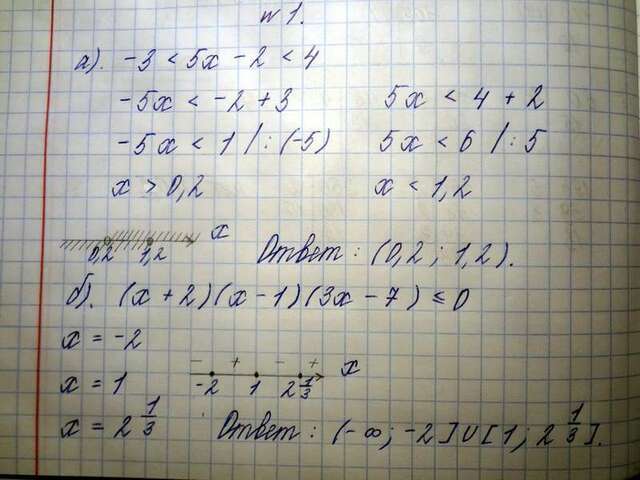 № 1.
а). -3 < 5x - 2 < 4
-5x < -2 + 3 5x < 4 + 2
-5x < 1 /: (-5) 5x < 6 /: 5
x > 0,2 x < 1,2
0,2 1,2 x Ответ: (0,2; 1,2).
б). (x + 2)(x - 1)(3x - 7) ≤ 0
x = -2
x = 1 - + - + x
-2 1 2 1/3
x = 2 1/3 Ответ: (-∞; -2] U [1; 2 1/3].